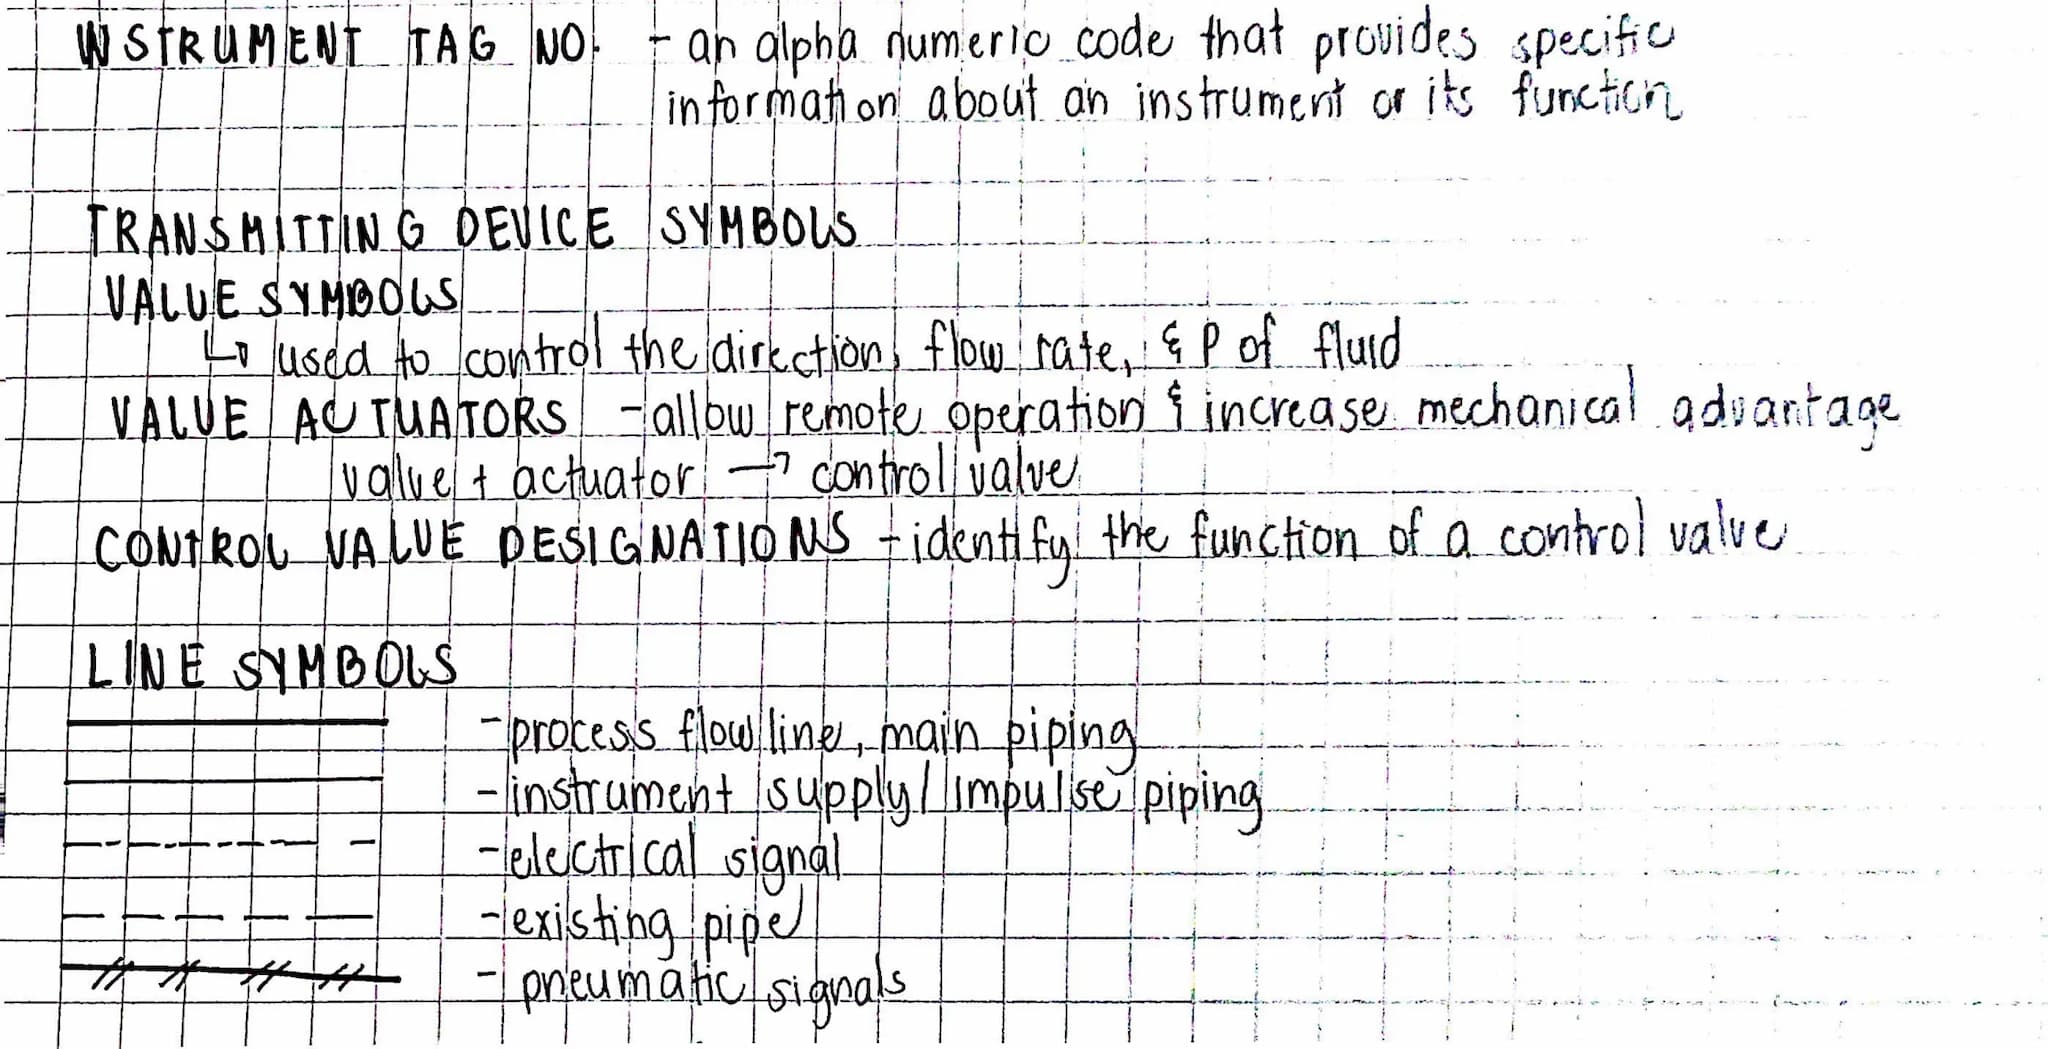 INSTRUMENT TAG NO. - an alpha numeric code that provides specific
information about an instrument or its function
TRANSMITTING DEVICE SYMBOLS
VALVE SYMBOLS
↳ used to control the direction, flow rate, & P of fluid
VALVE ACTUATORS - allow remote operation & increase mechanical advantage
valve + actuator → control valve
CONTROL VALVE DESIGNATIONS - identify the function of a control valve
LINE SYMBOLS
- process flow line, main piping
- instrument supply/impulse piping
- electrical signal
- existing pipe
- pneumatic signals